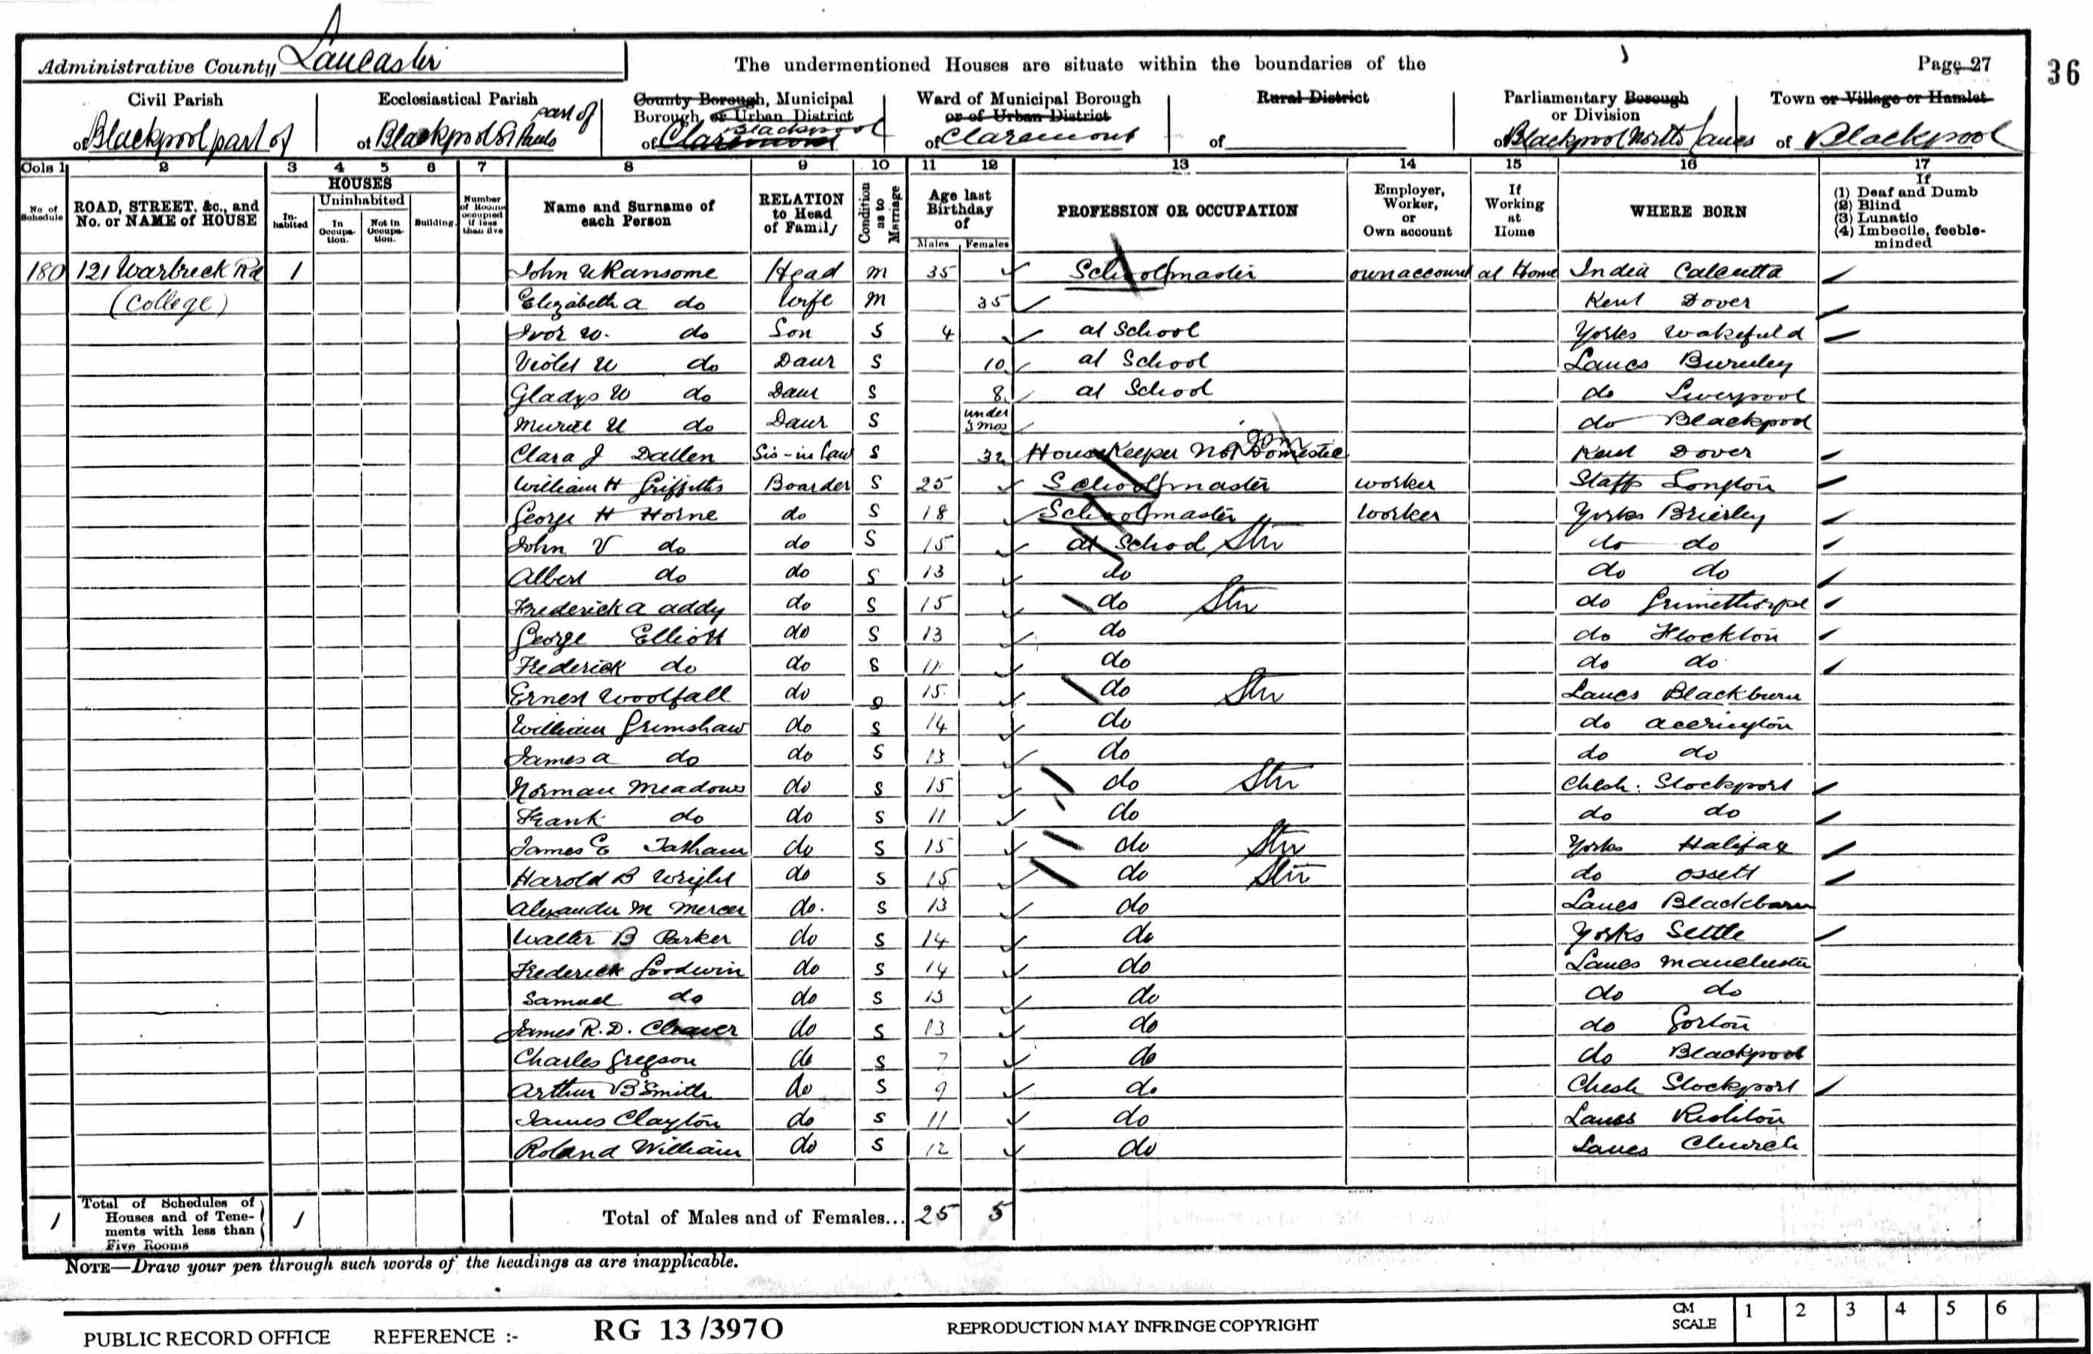 Administrative County Lancaster
The undermentioned Houses are situate within the boundaries of the
Page 27
36
Civil Parish
of Blackpool part of
Ecclesiastical Parish
of Blackpool St Pauls part of
County Borough, Municipal
Borough, or Urban District
of Claremont Blackpool
Ward of Municipal Borough
or of Urban District
of Claremont
Rural District
of
Parliamentary Borough
or Division
of Blackpool North Lancs
Town or Village or Hamlet
of Blackpool
Cols 1 2 3 4 5 6 7 8 9 10 11 12 13 14 15 16 17
No of Schedule
ROAD, STREET, &c., and No. or NAME of HOUSE
HOUSES
In-habited
Uninhabited
In Occupa-tion.
Not in Occupa-tion.
Building.
Number of Rooms occupied if less than five
Name and Surname of each Person
RELATION to Head of Family
Condition as to Marriage
Age last Birthday of
Males Females
PROFESSION OR OCCUPATION
Employer, Worker, or Own account
If Working at Home
WHERE BORN
If
(1) Deaf and Dumb
(2) Blind
(3) Lunatic
(4) Imbecile, feeble-minded
180 121 Warbreck Rd 1 John U Ransome Head m 35 Schoolmaster own account at Home India Calcutta
(College) Elizabeth a do Wife m 35 Kent Dover
Ivor W. do Son S 4 at School Yorks Wakefield
Violet U do Daur S 10 at School Lancs Burnley
Gladys U do Daur S 8 at School do Liverpool
Muriel U do Daur S under 3 mos do Blackpool
Clara J Dallen Sis-in law S 32 House Keeper Not Domestic Dom Kent Dover
William H Griffiths Boarder S 25 Schoolmaster worker Staff Longton
George H Horne do S 18 Schoolmaster worker Yorks Brierley
John V do do S 15 at School do do
Albert do do S 13 do do do
Frederick a addy do S 15 do do Grimethorpe
George Elliott do S 13 do do Flockton
Frederick do do S 11 do do do
Ernest Woolfall do 15 do Lancs Blackburn
William Grimshaw do S 14 do do accrington
James a do do S 13 do do do
Norman Meadows do S 15 do Chesh: Stockport
Frank do do S 11 do do do
James E Tatham do S 15 do Yorks Halifax
Harold B Wright do S 15 do do ossett
Alexander M Mercer do. S 13 do Lancs Blackburn
Walter B Parker do S 14 do Yorks Settle
Frederick Goodwin do S 14 do Lancs Manchester
Samuel do do S 13 do do do
James R. D. Cleaver do S 13 do do Gorton
Charles Gregson do S 7 do do Blackpool
Arthur B Smith do S 9 do Chesh Stockport
James Clayton do S 11 do Lancs Rishton
Roland William do S 12 do Lancs Church
1 Total of Schedules of Houses and of Tene-ments with less than Five Rooms 1 Total of Males and of Females... 25 5
NOTE—Draw your pen through such words of the headings as are inapplicable.
PUBLIC RECORD OFFICE REFERENCE :- RG 13/3970 REPRODUCTION MAY INFRINGE COPYRIGHT CM SCALE 1 2 3 4 5 6